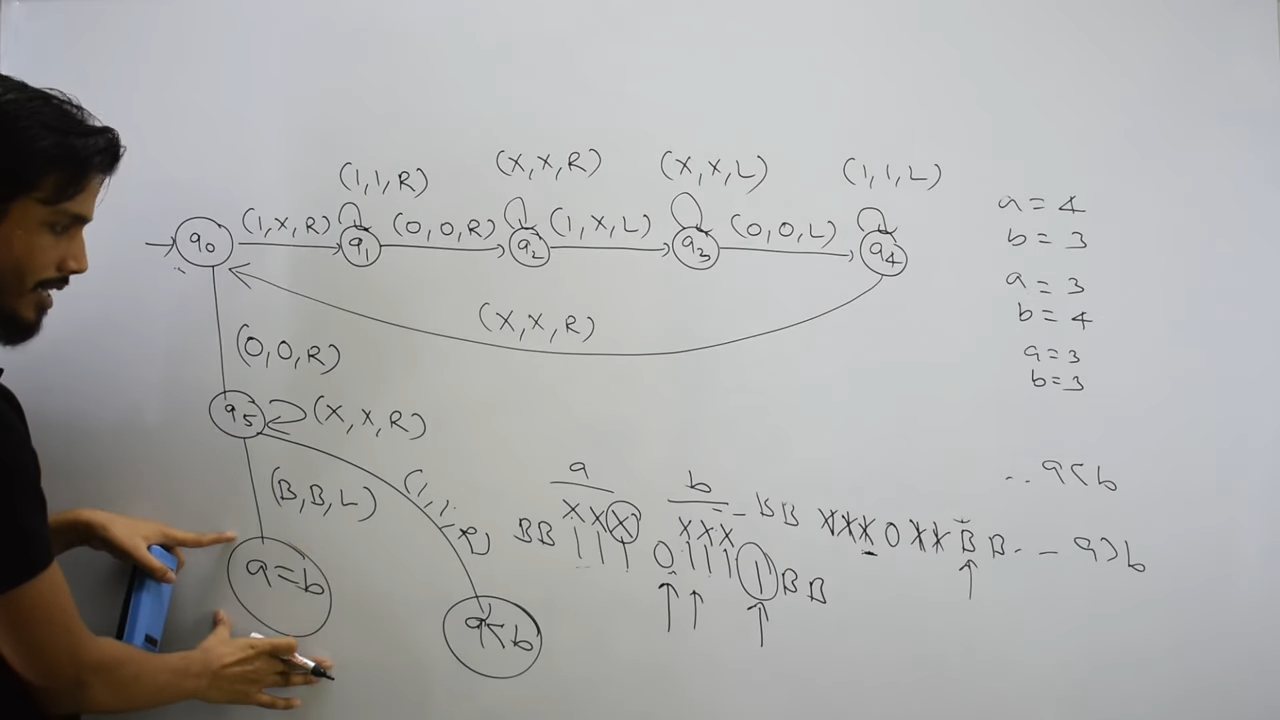 (1,1,R) (X,X,R) (X,X,L) (1,1,L)
q0 (1,X,R) q1 (0,0,R) q2 (1,X,L) q3 (0,0,L) q4
(X,X,R)
(0,0,R)
q5 (X,X,R)
(B,B,L) (1,1,R)
a=b a<b
a = 4
b = 3
a = 3
b = 4
a=3
b=3
a b
BB XXX XXX BB
111 0 111 1 BB
XXX 0 XX B B
a<b
a>b